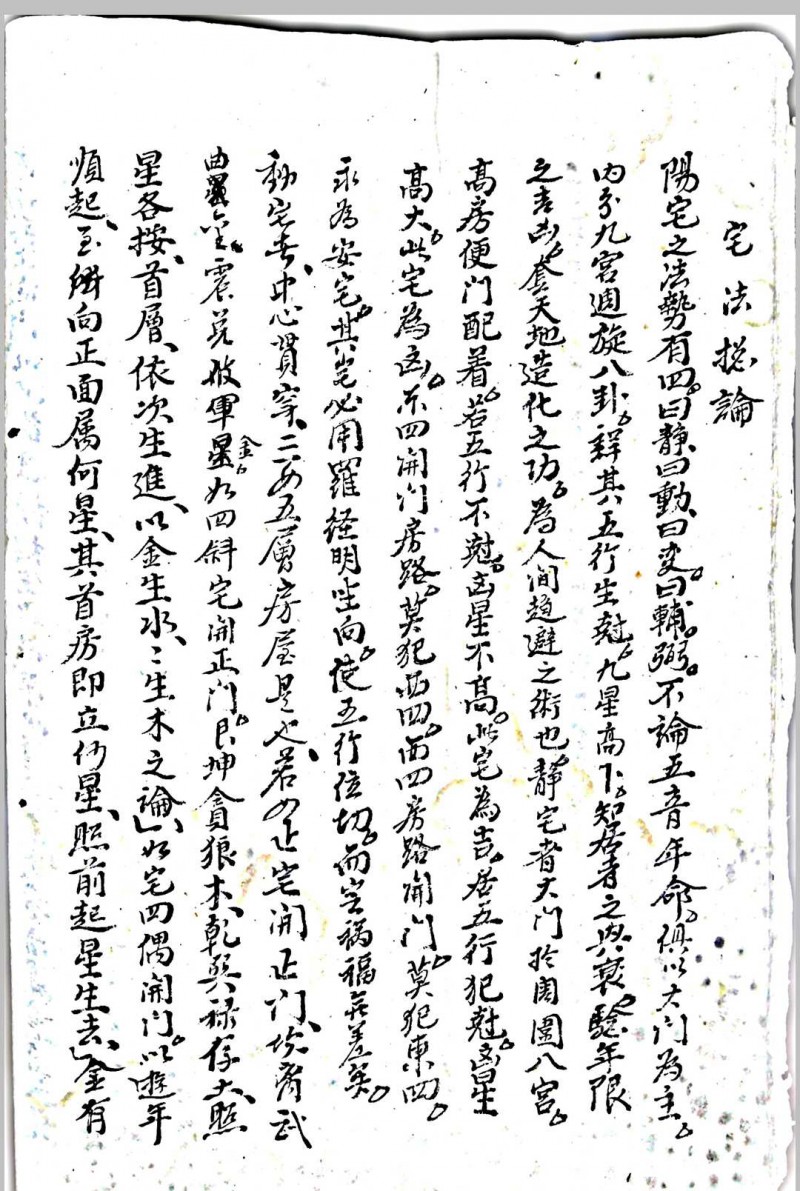 宅法捴論
陽宅之法勢有四。曰靜、曰動、曰变。曰輔弼。不論五音年命。俱以大门為主。
內分九宮週旋八卦。詳其五行生尅。九星高下。知居者之興衰。驗年限
之吉凶。奪天地造化之功。為人间趋避之術也。靜宅者大门於周圍八宮。
高房便门配着。若五行不尅。凶星不高。此宅為吉。居五行犯尅。凶星
高大。此宅為凶。东四開门房路。莫犯西四。西四房路開门。莫犯東四。
永為安宅。其宅必用羅経明坐向。使五行位切。而宅禍福無差矣。
動宅者、中心贯穿、二至五層房屋是也。若正宅開正门、坎离武
曲金。震兌破軍星金。如四斜宅開正门。艮坤貪狼木、乾巽禄存土、照
星各按、首層、依次生進、以金生水、水生木之論、如宅四偶開门。以遊年
順起、至 向正面属何星、其首房即立何星、照前起星生去、金有